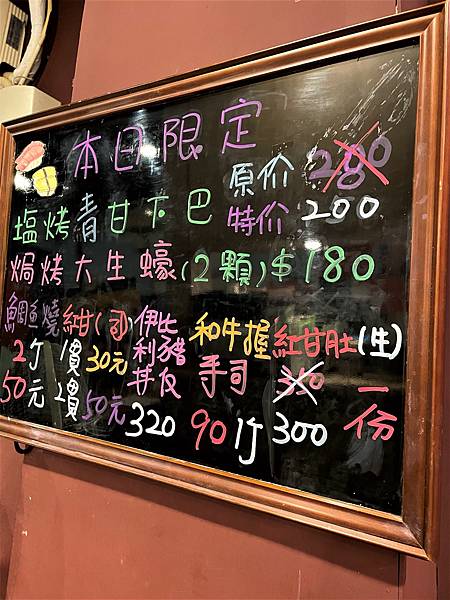 本日限定
原价 280
塩烤青甘下巴 特价 200
焗烤大生蠔(2顆)$180
鯛魚燒 紺( 伊比利豬丼飯 和牛握手司 紅甘肚(生)
2个 1價 30元 320 90 1个 350 300 一份
50元 2價 50元